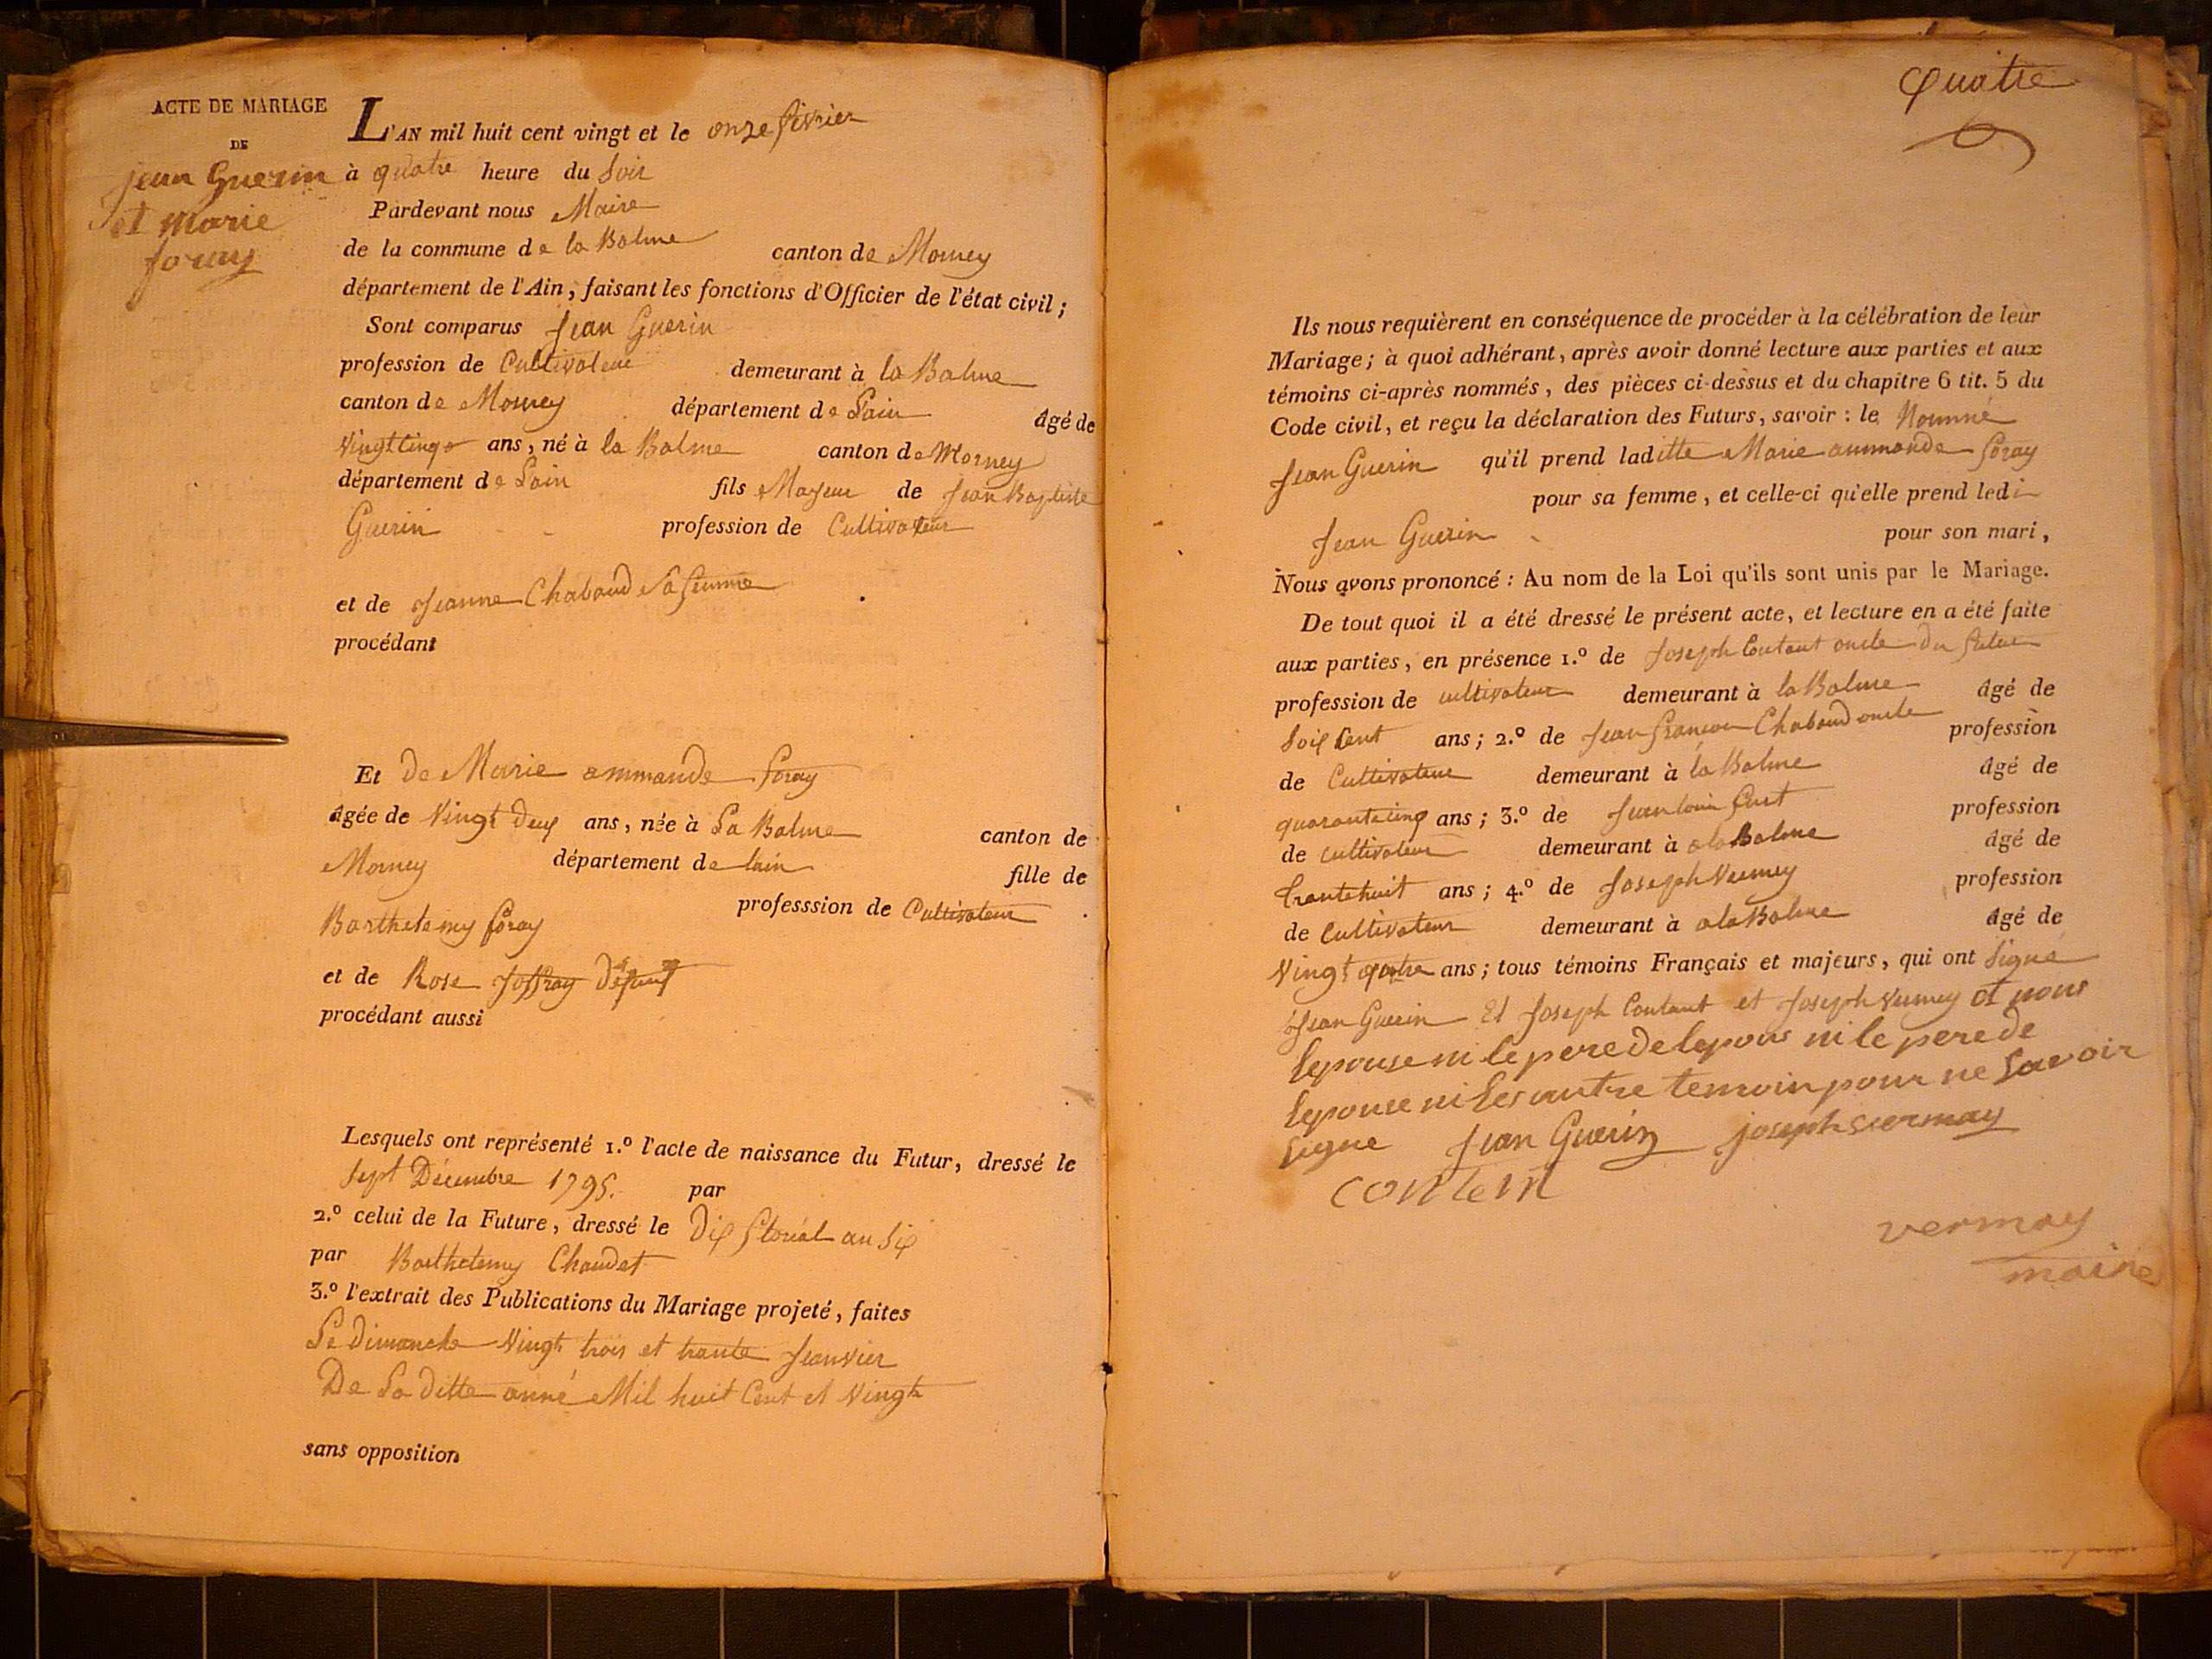 ACTE DE MARIAGE
DE
jean Guerin
et marie
foray
L'AN mil huit cent vingt et le onze fevrier
à quatre heure du Soir
Pardevant nous Maire
de la commune de la Balme canton de Morney
département de l'Ain, faisant les fonctions d'Officier de l'état civil;
Sont comparus Jean Guerin
profession de Cultivateur demeurant à la Balme
canton de Morney département de Lain âgé de
Vingt cinq ans, né à la Balme canton de Morney
département de Lain fils Majeur de Jean Baptiste
Guerin profession de Cultivateur
et de Jeanne Chaboud Sa femme
procédant
Et de Marie ammande foray
âgée de Vingt deux ans, née à La Balme canton de
Morney département de lain fille de
Barthelemy foray professsion de Cultivateur
et de Rose Joffray
procédant aussi
Lesquels ont représenté 1.º l'acte de naissance du Futur, dressé le
Sept Décembre 1795. par
2.º celui de la Future, dressé le Dix floréal an Six
par Barthelemy Chaudet
3.º l'extrait des Publications du Mariage projeté, faites
Le dimanche Vingt trois et trante Jeanvier
De La ditte anné Mil huit Cent et Vingt
sans opposition
quatre
Ils nous requièrent en conséquence de procéder à la célébration de leur
Mariage; à quoi adhérant, après avoir donné lecture aux parties et aux
témoins ci-après nommés, des pièces ci-dessus et du chapitre 6 tit. 5 du
Code civil, et reçu la déclaration des Futurs, savoir : le Nommé
Jean Guerin qu'il prend laditte Marie ammande foray
pour sa femme, et celle-ci qu'elle prend ledi
Jean Guerin pour son mari,
Nous avons prononcé : Au nom de la Loi qu'ils sont unis par le Mariage.
De tout quoi il a été dressé le présent acte, et lecture en a été faite
aux parties, en présence 1.º de Joseph Contant oncle du futur
profession de cultivateur demeurant à la Balme âgé de
ans; 2.º de Jean françois Chaboud oncle profession
de Cultivateur demeurant à la Balme âgé de
quarante cinq ans; 3.º de Jean louis profession
de cultivateur demeurant à a la Balme âgé de
trante huit ans; 4.º de Joseph profession
de Cultivateur demeurant à a la Balme âgé de
Vingt quatre ans; tous témoins Français et majeurs, qui ont Signé
Jean Guerin Et Joseph Contant et Joseph et nous
lepouse ni le pere de lepous ni le pere de
lepouse ni les autre temoin pour ne Savoir
Signe Jean Guerin joseph vermay
contem
vermay
maire